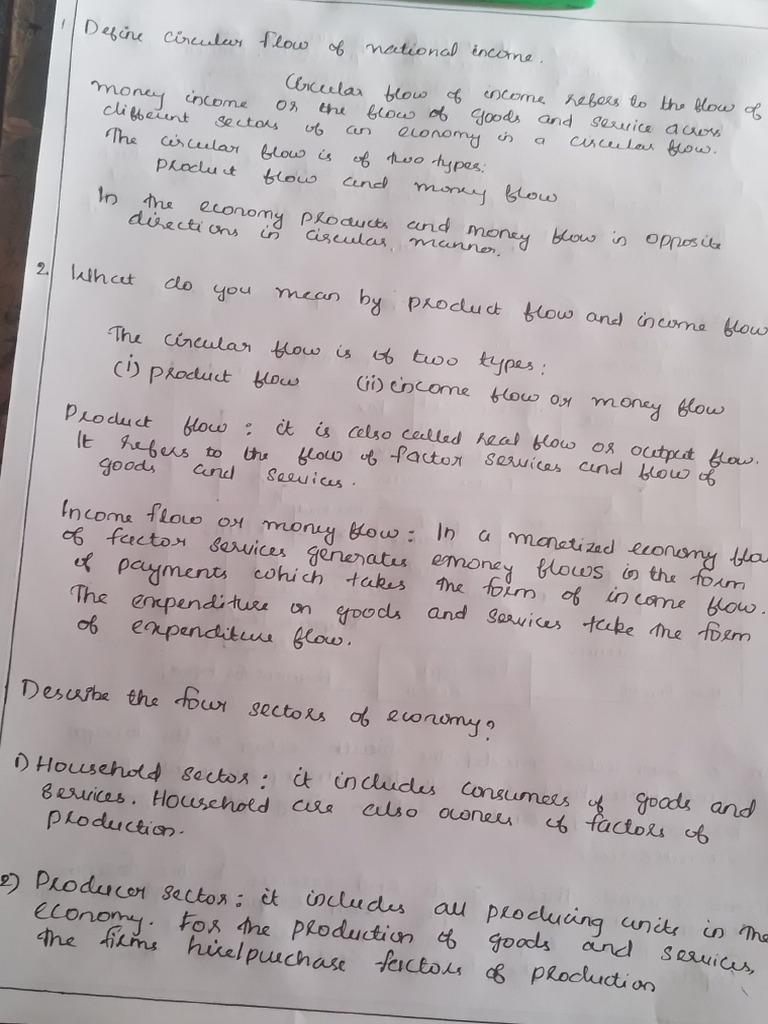 1. Define circular flow of national income.
Circular flow of income refers to the flow of
money income or the flow of goods and service across
different sectors of an economy in a circular flow.
The circular flow is of two types:
product flow and money flow
In the economy products and money flow in opposite
directions in circular manner.
2. What do you mean by product flow and income flow
The circular flow is of two types:
(i) product flow (ii) income flow or money flow
Product flow: it is also called real flow or output flow.
It refers to the flow of factor services and flow of
goods and services.
Income flow or money flow: In a monetized economy flo
of factor services generates emoney flows in the form
of payments which takes the form of income flow.
The expenditure on goods and services take the form
of expenditure flow.
Describe the four sectors of economy?
1) Household sector: it includes consumers of goods and
services. Household are also owners of factors of
production.
2) Producer sector: it includes all producing units in the
economy. For the production of goods and services,
the firms hire/purchase factors of production